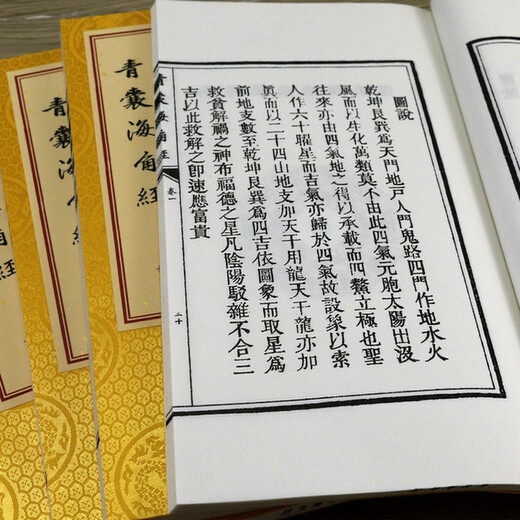 圖說
乾坤艮巽爲天門地戸人門鬼路四門作地水火
風而以生化萬類莫不由此四氣元胞太陽出沒
往來亦由四氣地之得以承載而四鰲立極也聖
人作六十曜星而吉氣亦歸於四氣故設象以索
眞而以二十四山地支加天干用龍天干龍亦加
前地支數至乾坤艮巽爲四吉依圖象而取星爲
救貧解禍之神布福德之星凡陰陽駁雜不合三
吉以此救解之卽速應富貴
青囊海角經
卷一
二十
青囊海角經
青囊海角經
角經